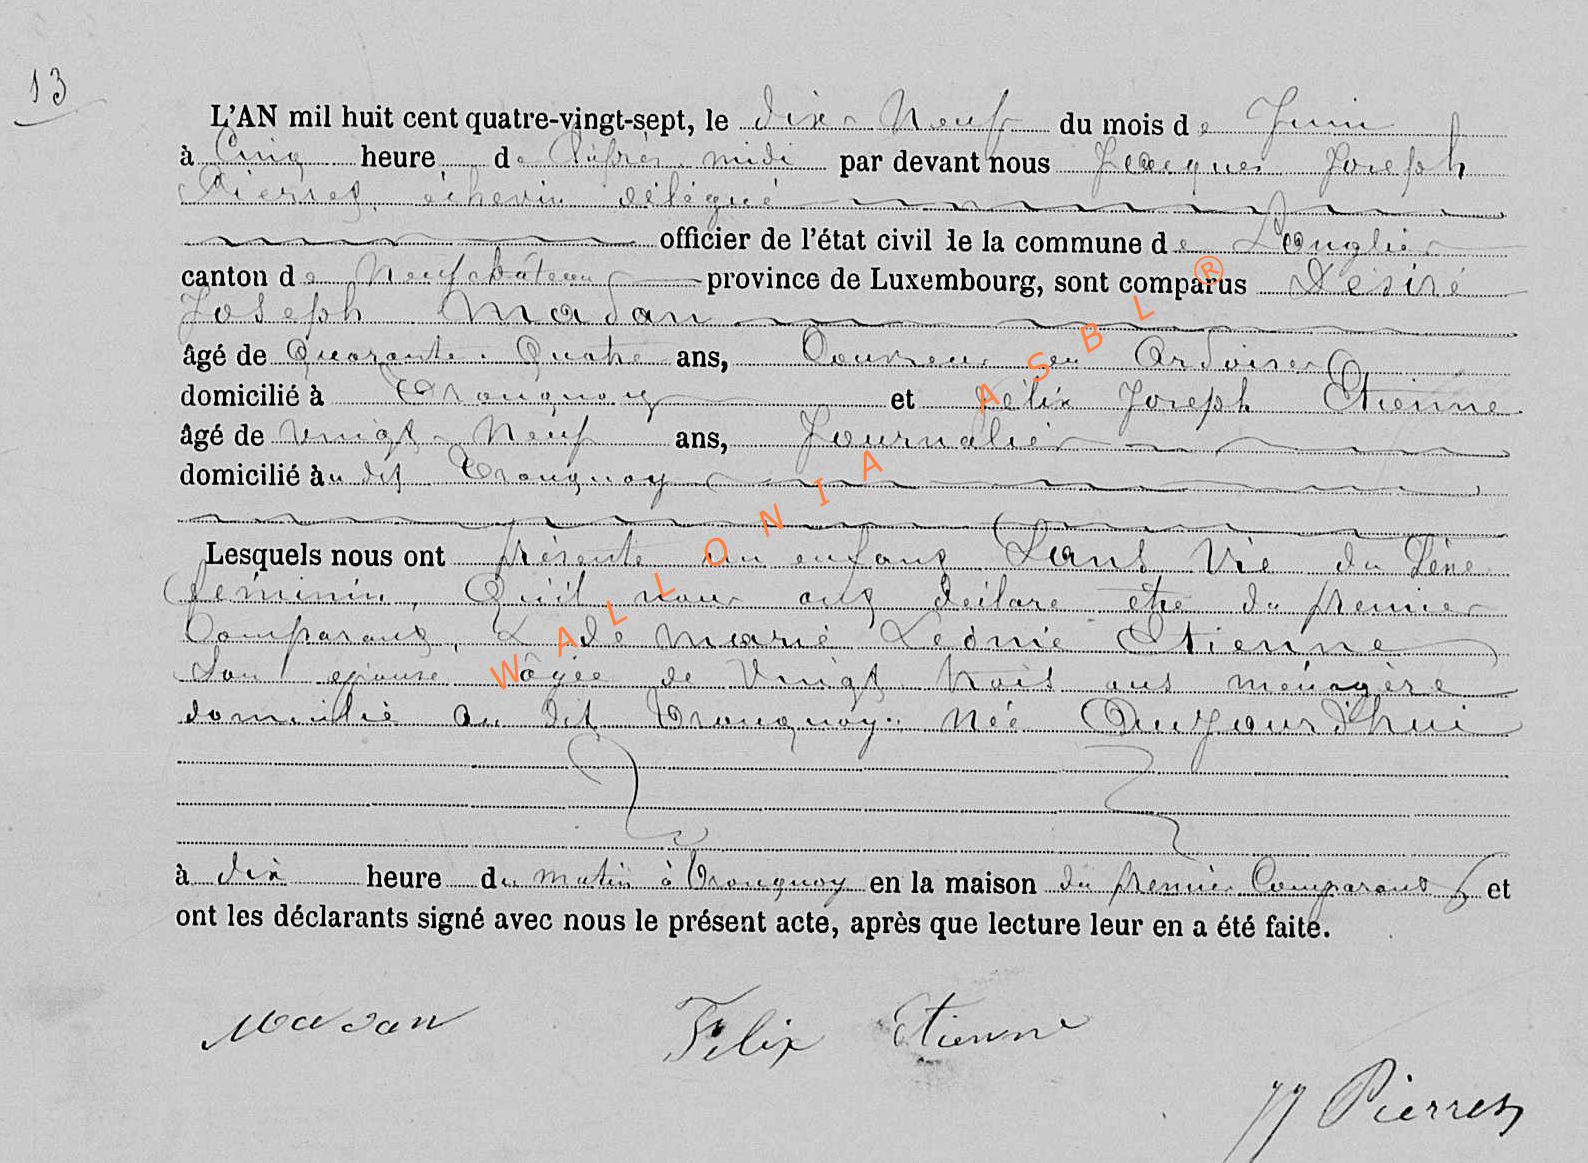 13
L'AN mil huit cent quatre-vingt-sept, le dix-Neuf du mois de Juin
à Cinq heure de l'après midi par devant nous Jacques Joseph
Pierret, échevin délégué
officier de l'état civil de la commune de Longlier
canton de Neufchâteau province de Luxembourg, sont comparus Désiré
Joseph Madan
âgé de Quarante-Quatre ans, Couvreur en Ardoises
domicilié à Tronquoy et Félix Joseph Etienne
âgé de Vingt-Neuf ans, Journalier
domicilié àu dit Tronquoy
Lesquels nous ont présenté un enfant Sans Vie du Sexe
féminin, Qu'il nous ont déclaré etre du premier
Comparant, & de Marie Léonie Etienne
Son épouse âgée de Vingt trois ans ménagère
domicilié au dit Tronquoy Née Aujourd'hui
à dix heure du matin à Tronquoy en la maison du premier Comparant et
ont les déclarants signé avec nous le présent acte, après que lecture leur en a été faite.
Madan Félix Etienne
JJ Pierret
WALLONIA ASBL ®